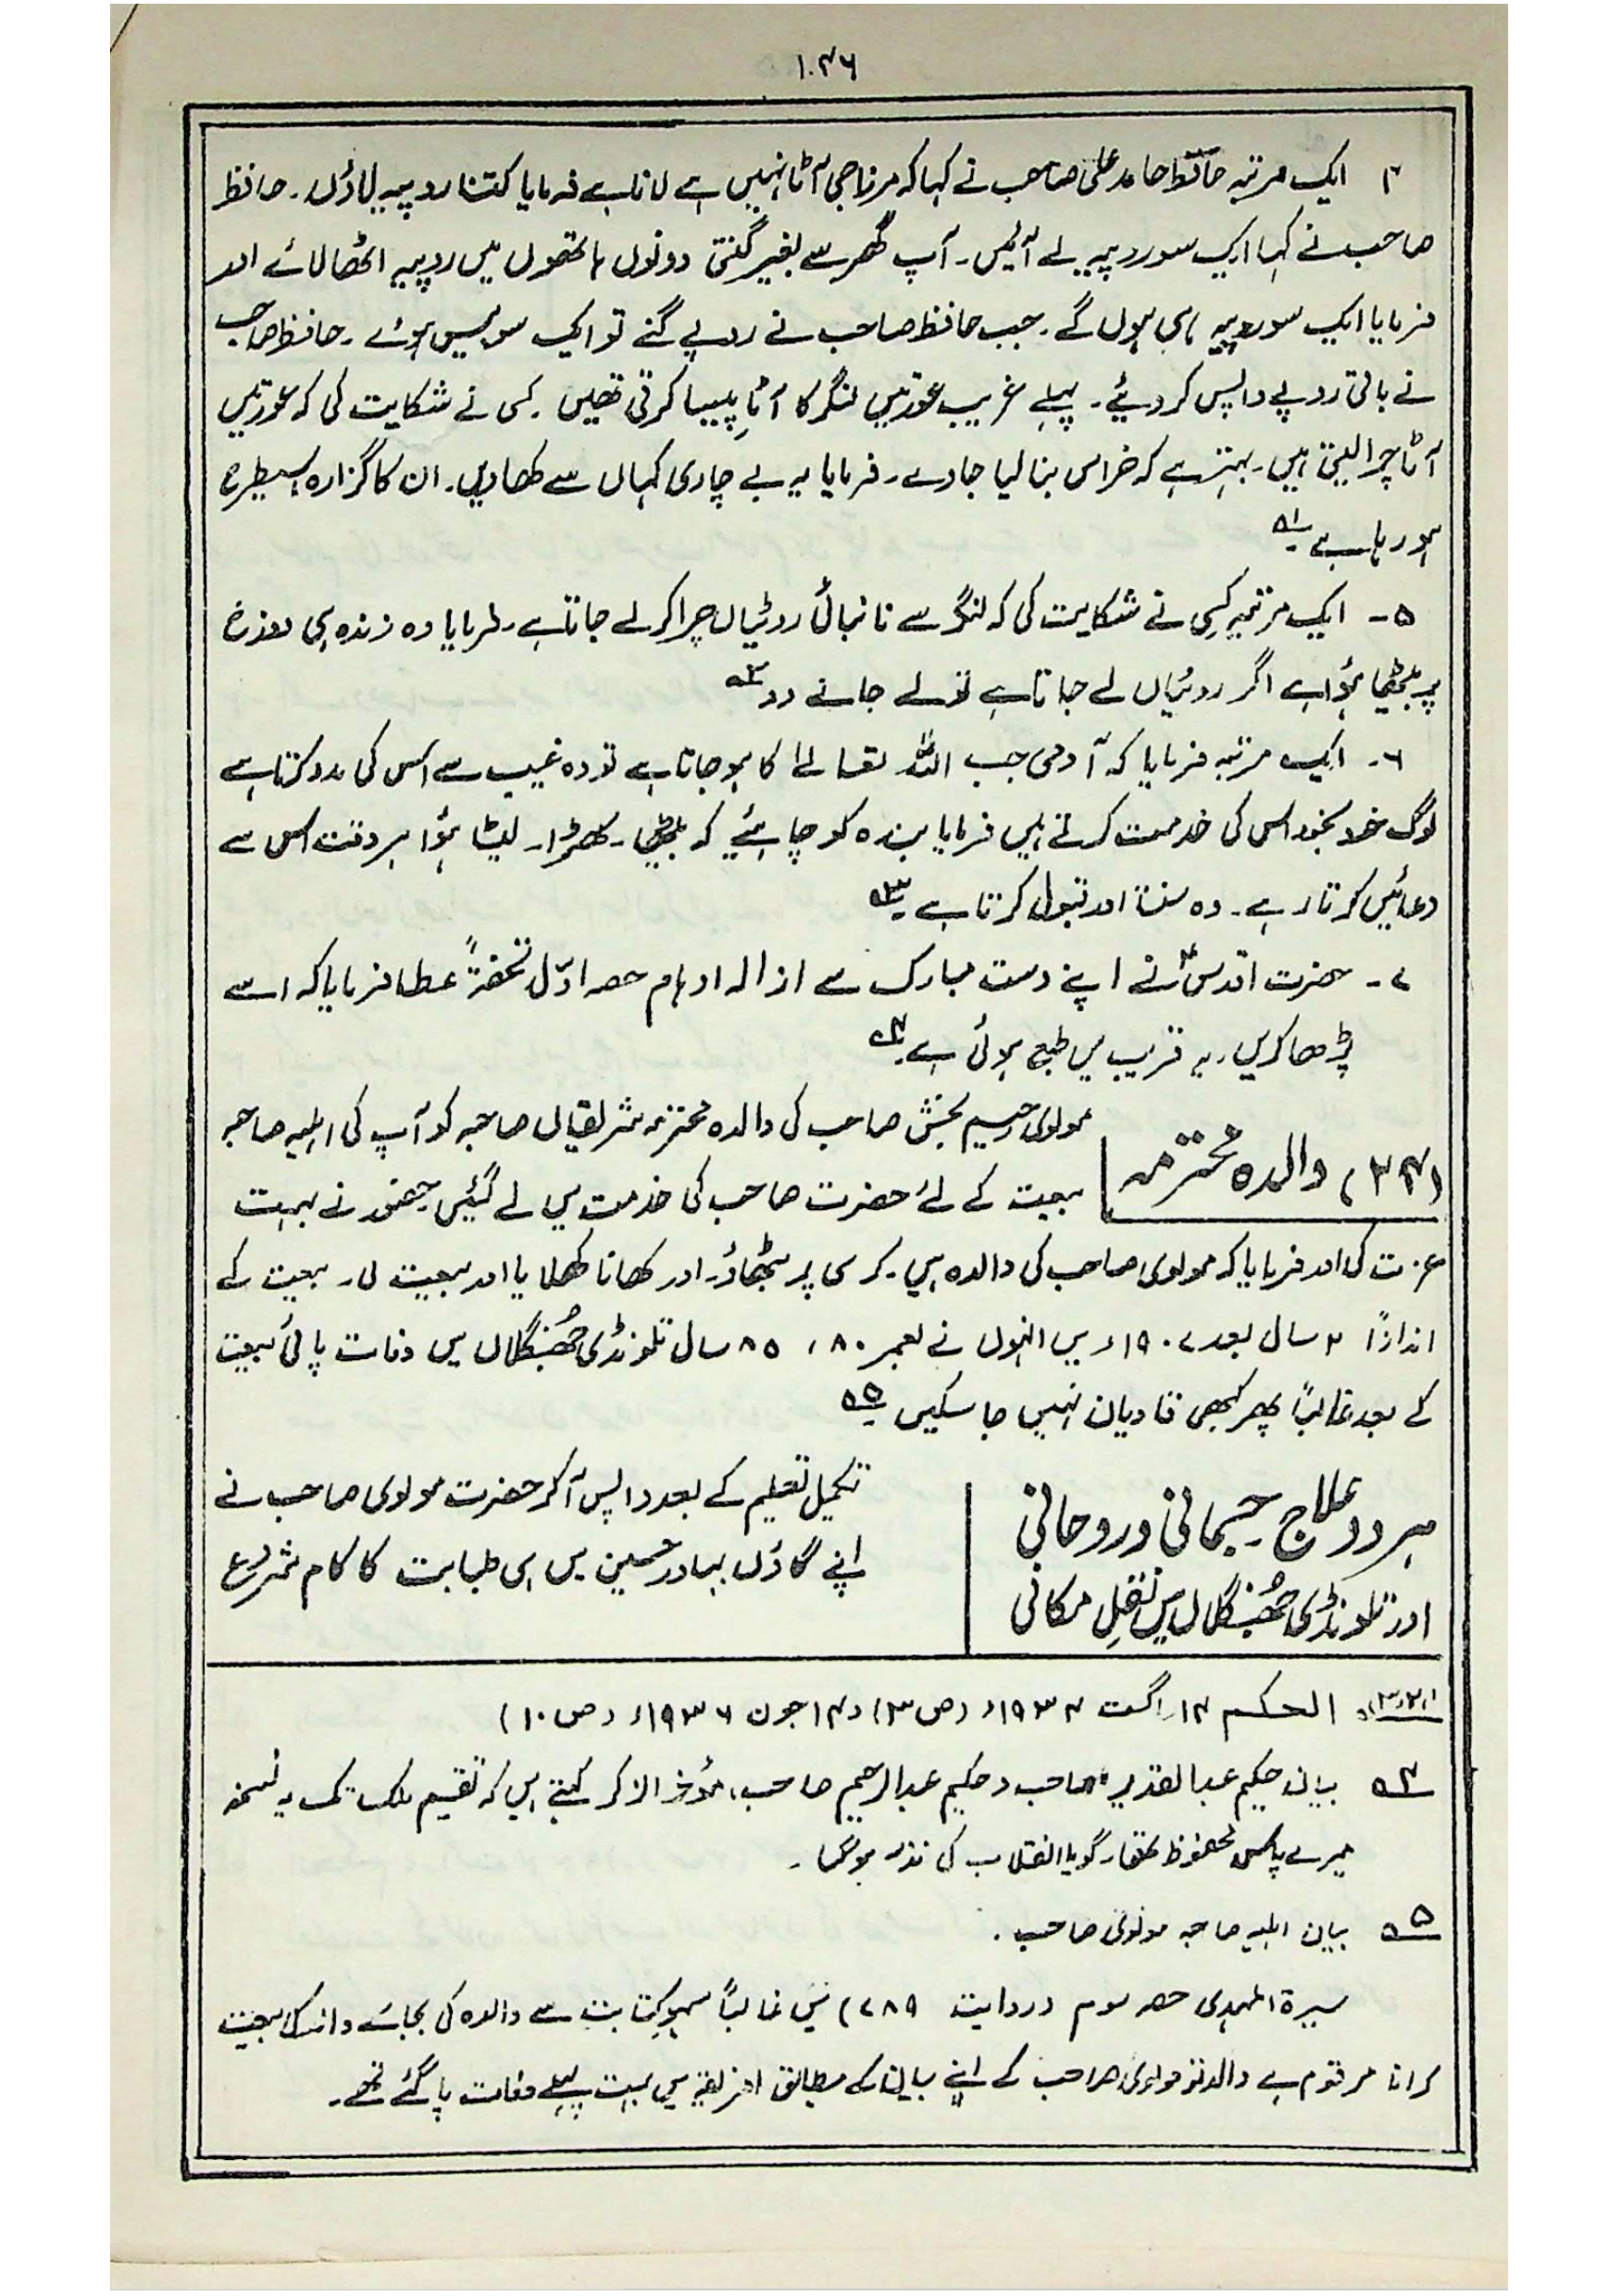 ۱۰۴۶
۴ ایک مرتبہ حافظ حامد علی صاحب نے کہا کہ مرزا جی آٹا نہیں ہے لانا ہے فرمایا کتنا روپیہ لاؤں۔ حافظ
صاحب نے کہا ایک سو روپیہ لے آئیں۔ آپ گھر سے بغیر گنتی دونوں ہاتھوں میں روپیہ اٹھا لائے اور
فرمایا ایک سو روپیہ ہی ہوں گے۔ جب حافظ صاحب نے روپے گنے تو ایک سو بیس ہوئے۔ حافظ صاحب
نے باقی روپے واپس کر دیئے۔ پہلے غریب عورتیں لنگر کا آٹا پیسا کرتی تھیں۔ کسی نے شکایت کی کہ عورتیں
آٹا چرا لیتی ہیں۔ بہتر ہے کہ خراس بنا لیا جاوے۔ فرمایا یہ بے چاری کہاں سے کھاویں۔ ان کا گزارہ اسیطرح
ہو رہا ہے ؎۱
۵۔ ایک مرتبہ کسی نے شکایت کی کہ لنگر سے نانبائی روٹیاں چرا کر لے جاتا ہے۔ فرمایا وہ زندہ ہی دوزخ
پر بیٹھا ہؤا ہے اگر روٹیاں لے جاتا ہے تو لے جانے دو ؎۲
۶۔ ایک مرتبہ فرمایا کہ آدمی جب اللہ تعالےٰ کا ہو جاتا ہے تو وہ غیب سے اس کی مدد کرتا ہے
لوگ خود بخود اس کی خدمت کرتے ہیں فرمایا بندہ کو چاہیئے کہ بیٹھا۔ کھڑا۔ لیٹا ہؤا ہر وقت اس سے
دعائیں کرتا رہے۔ وہ سنتا اور قبول کرتا ہے ؎۳
۷۔ حضرت اقدسؑ نے اپنے دست مبارک سے ازالہ اوہام حصہ اوّل تحفۃً عطا فرمایا کہ اسے
پڑھا کریں۔ یہ قریب میں طبع ہوئی ہے ؎۴
(۳۴) والدہ محترمہ
مولوی رحیم بخش صاحب کی والدہ محترمہ شریفاں صاحبہ کو آپ کی اہلیہ صاحبہ
بیعت کے لئے حضرت صاحب کی خدمت میں لے گئیں۔ حضور نے بہت
عزت کی اور فرمایا کہ مولوی صاحب کی والدہ ہیں۔ کرسی پر بٹھاؤ۔ اور کھانا کھلایا اور بیعت لی۔ بیعت کے
اندازًا ۲ سال بعد ۱۹۰۷ء میں انہوں نے بعمر ۸۰، ۸۵ سال تلونڈی جھُنگلاں میں وفات پائی بیعت
کے بعد غالباً پھر کبھی قادیان نہیں جا سکیں ؎۵
ہر دو علاج جسمانی و روحانی
اور تلونڈی جھُنگلاں میں نقلِ مکانی
تکمیل تعلیم کے بعد واپس آ کر حضرت مولوی صاحب نے
اپنے گاؤں بہادر حسین میں ہی طبابت کا کام شروع
؎۱،۲،۳ الحکم ۱۴؍اگست ۱۹۳۴ء (ص ۳) و ۱۴جون ۱۹۳۶ء (ص ۱۰)
؎۴ بیان حکیم عبدالقدیر صاحب و حکیم عبدالرحیم صاحب، مؤخر الذکر کہتے ہیں کہ تقسیم ملک تک یہ نسخہ
میرے پاس محفوظ تھا۔ گویا انقلاب کی نذر ہو گیا۔
؎۵ بیان اہلیہ صاحبہ مولوی صاحب۔
سیرۃ المہدی حصہ سوم (روایت ۷۸۹) میں غالباً سہو کتابت سے والدہ کی بجائے والد کی بیعت
کرانا مرقوم ہے والد تو مولوی صاحب کے اپنے بیان کے مطابق افریقہ میں بہت پہلے وفات پا گئے تھے۔